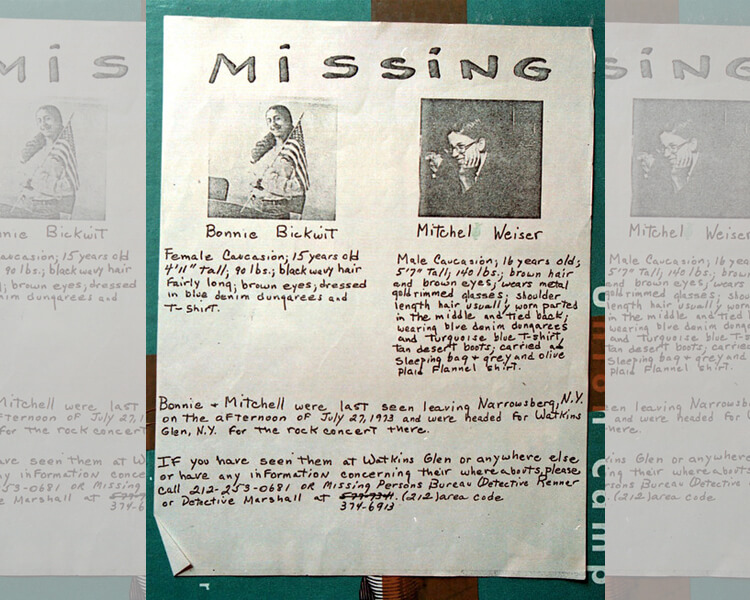 MiSSiNG
Bonnie Bickwit
Female Caucasion; 15 years old
4'11" tall; 90 lbs.; black wavy hair
Fairly long; brown eyes; dressed
in blue denim dungarees and
T-shirt.
Mitchel Weiser
Male Caucasion; 16 years old;
5'7" Tall; 140 lbs.; brown hair
and brown eyes; wears metal
gold rimmed glasses; shoulder
length hair usually worn parted
in the middle and tied back;
wearing blue denim dungarees
and Turquoise blue T-shirt,
tan desert boots; carried a
sleeping bag + grey and olive
plaid Flannel shirt.
Bonnie + Mitchell were last seen leaving Narrowsberg, N.Y.
on the afternoon of July 27, 1973 and were headed for Watkins
Glen, N.Y. for the rock concert there.
IF you have seen them at Watkins Glen or anywhere else
or have any information concerning their whereabouts, please
call 212-253-0681 OR Missing Persons Bureau (Detective Kenner
or Detective Marshall at (212) area code
374-6913
camp